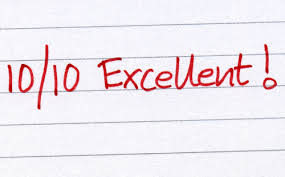 10/10 Excellent!